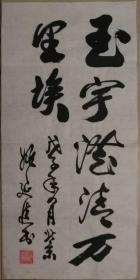 玉宇澄清万
里埃
戊子年月北京
延书